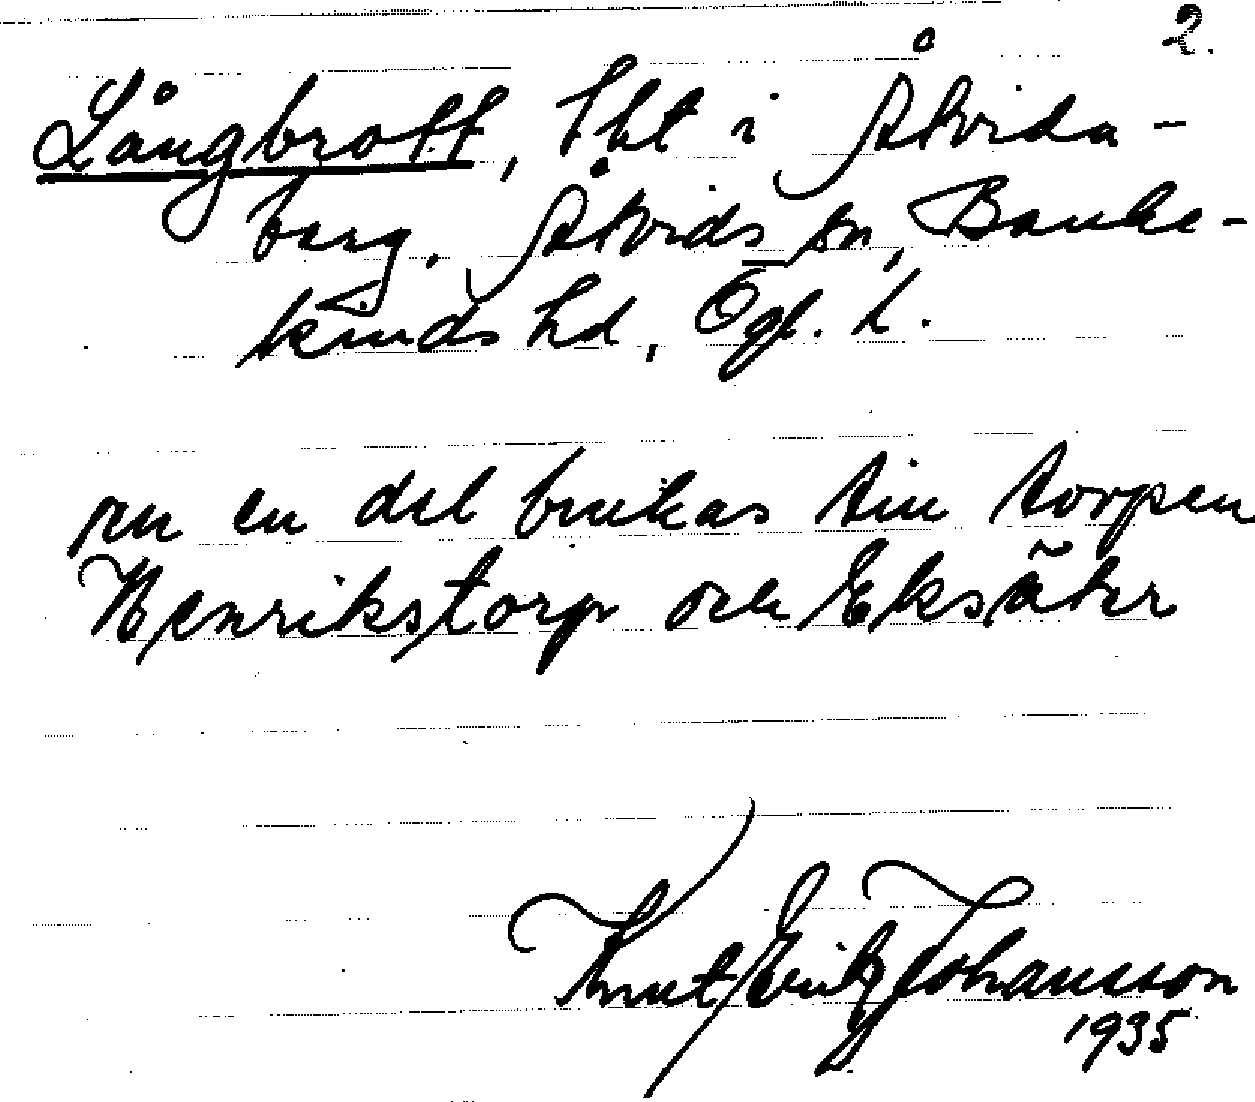 2.
Långbrott, lht i Åtvida-
berg, Åtvids sn, Banke-
kinds hd, Ögl. l.
en del brukas torpen
Henrikstorp och Eksäter
Knut Erik Johansson
1935